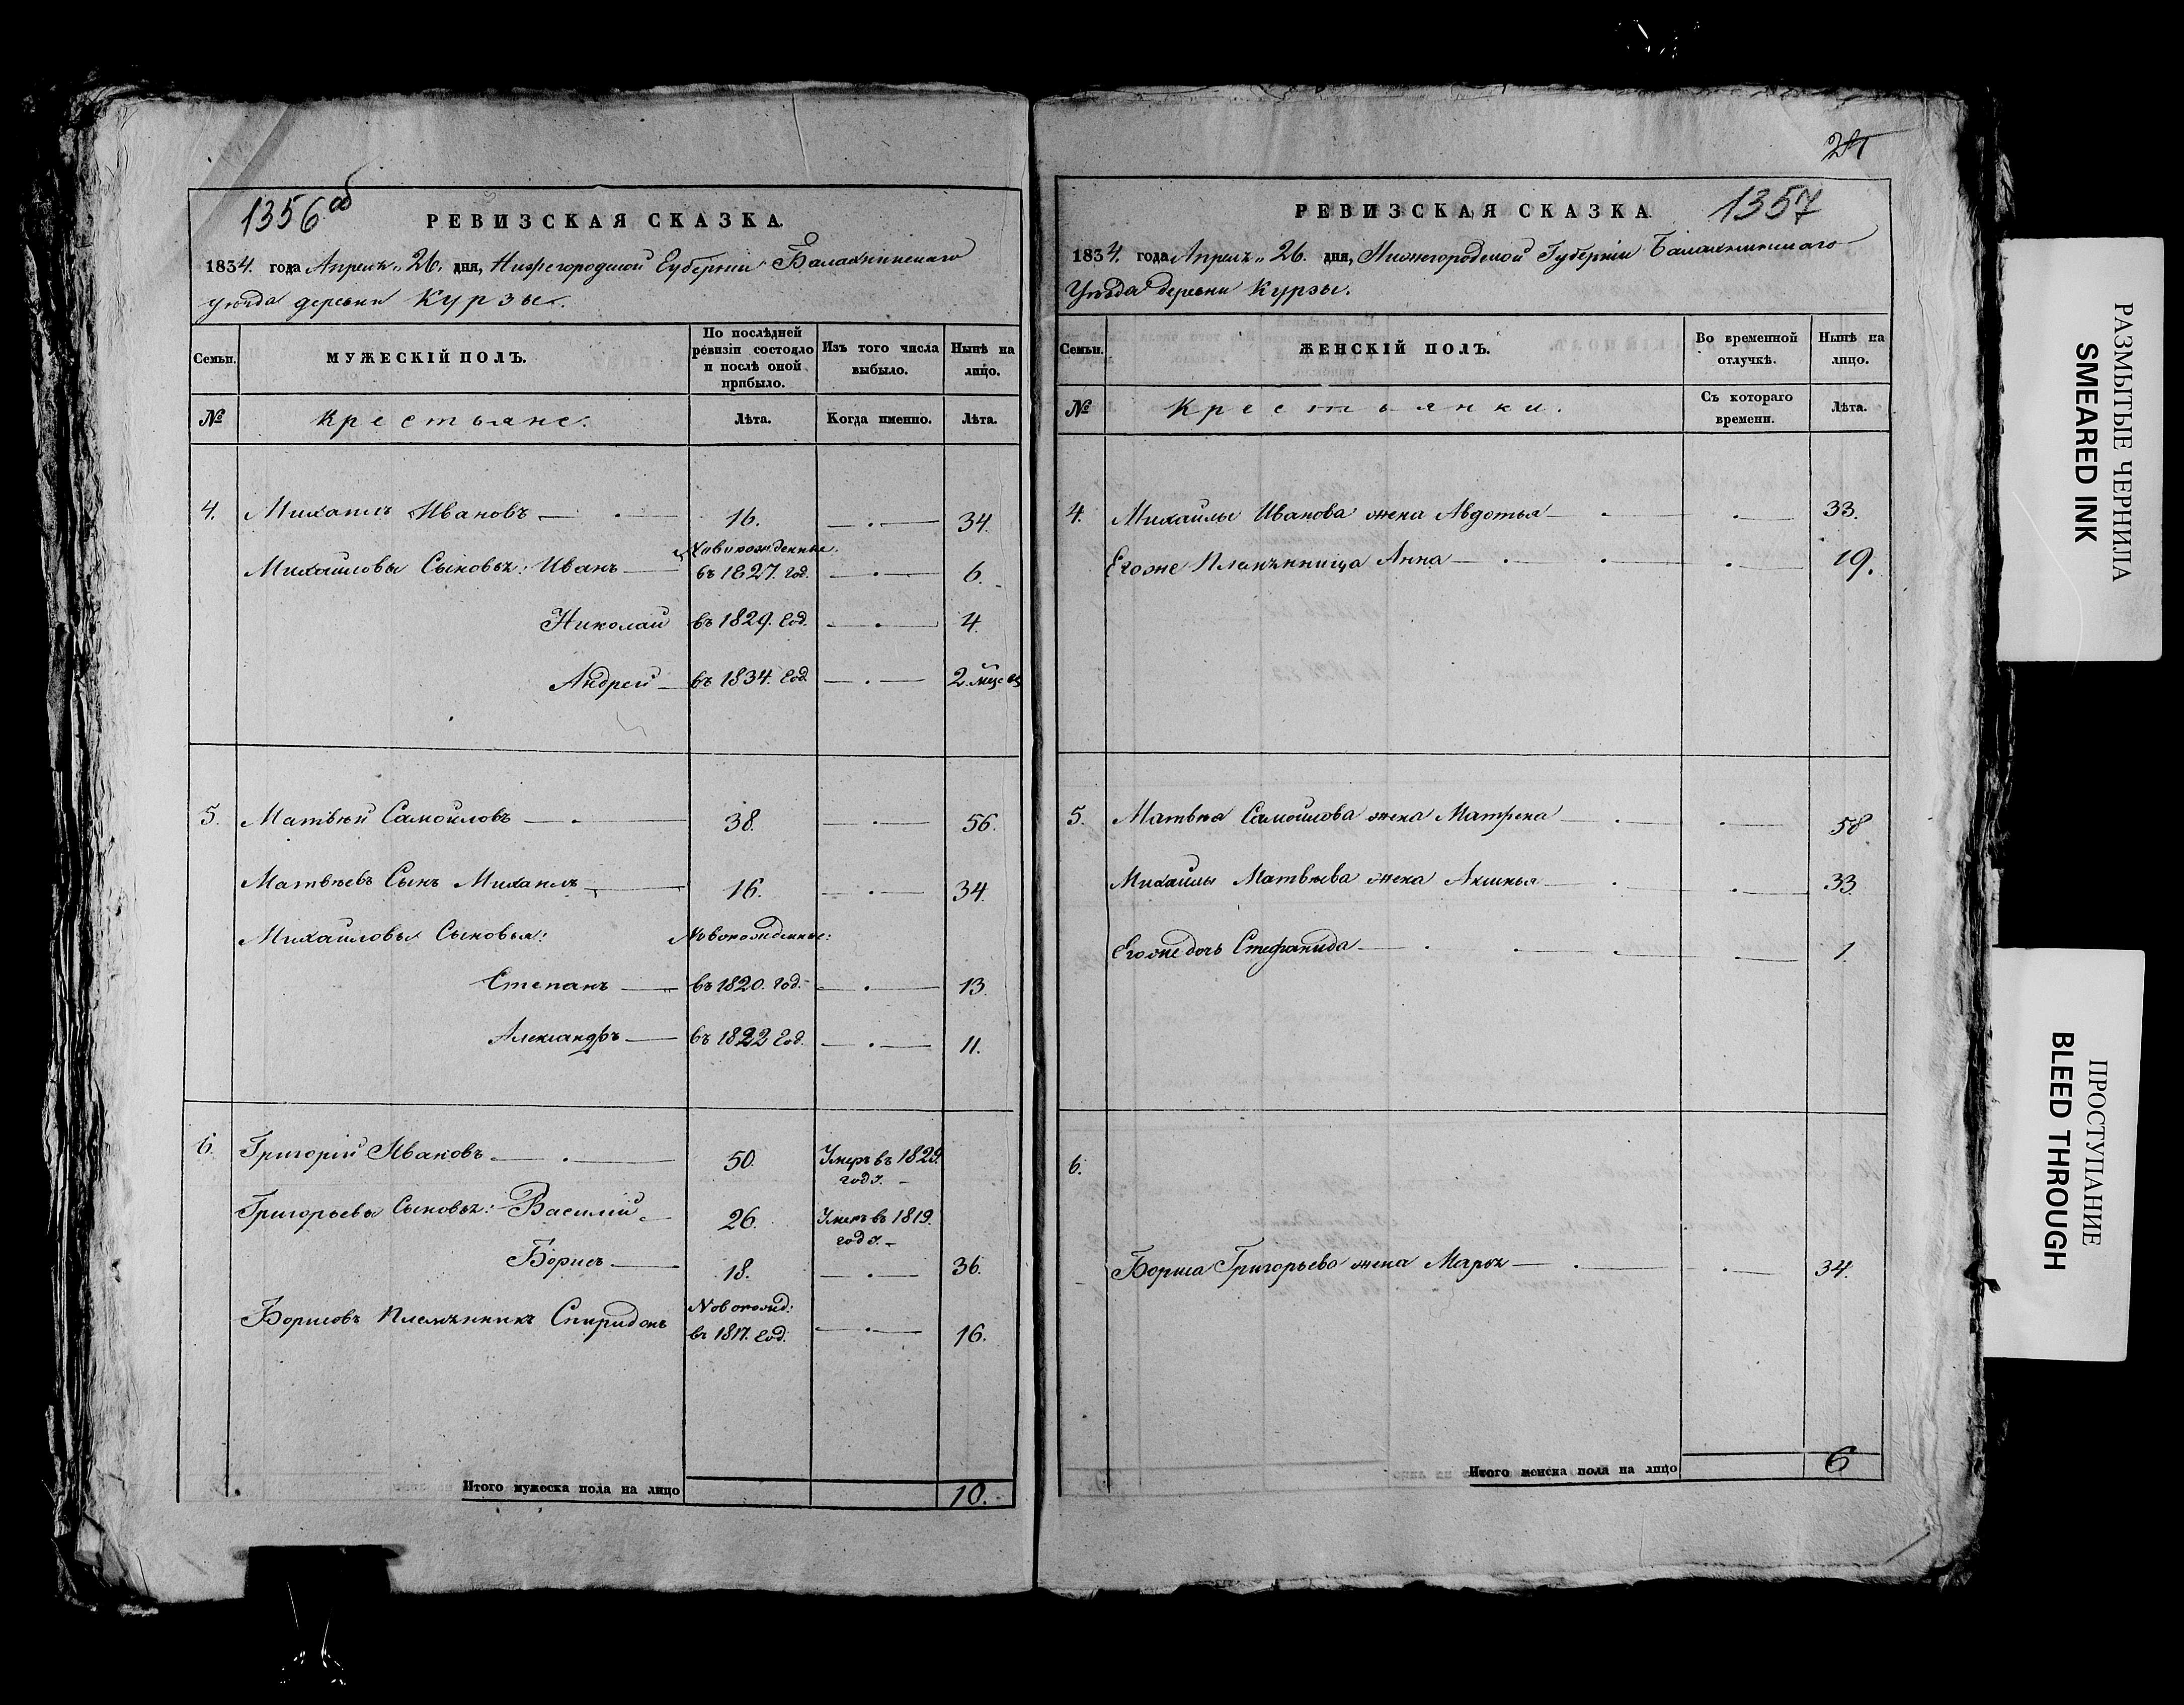 1356 об
РЕВИЗСКАЯ СКАЗКА.
1834. года Апреля 26. дня, Нижегородской Губернии Балахнинскаго
уѣзда деревни Курзы.
Семьи. МУЖЕСКІЙ ПОЛЪ. По послѣдней ревизіи состояло и послѣ оной прибыло. Изъ того числа выбыло. Нынѣ на лицо.
№ Крестьяне. Лѣта. Когда именно. Лѣта.
4. Михаилъ Ивановъ 16. 34.
Новорожденные
Михайловы Сыновья: Иванъ въ 1827. год. 6.
Николай въ 1829. Год. 4.
Андрей въ 1834. Год 2. мцсвъ
5. Матвѣй Самойловъ 38. 56.
Матвѣевъ Сынъ Михаилъ 16. 34.
Михайловы Сыновья: Новорожденные:
Степанъ въ 1820. год. 13.
Александръ въ 1822 Год. 11.
6. Григорій Ивановъ 50. Умеръ въ 1829.
году.
Григорьевы Сыновья: Василій 26. Умеръ въ 1819.
году.
Борисъ 18. 36.
Новорожд:
Борисовъ племянникъ Спиридонъ въ 1817. Год. 16.
Итого мужеска пола на лицо 10.
1357
РЕВИЗСКАЯ СКАЗКА
1834. года Апреля 26. дня, Нижегородской Губерніи Балахнинскаго
Уѣзда деревни Курзы.
Семьи. ЖЕНСКІЙ ПОЛЪ. Во временной отлучкѣ. Нынѣ на лицо.
№ Крестьянки. Съ котораго времени. Лѣта.
4. Михайлы Иванова жена Авдотья 33.
Егоже Племянница Анна 19.
5. Матвѣя Самойлова жена Матрена 58
Михайлы Матвѣева жена Аксинья 33.
Егоже дочь Стефанида 1.
6.
Бориса Григорьева жена Марья 34.
Итого женска пола на лицо 6
РАЗМЫТЫЕ ЧЕРНИЛА
SMEARED INK
ПРОСТУПАНИЕ
BLEED THROUGH